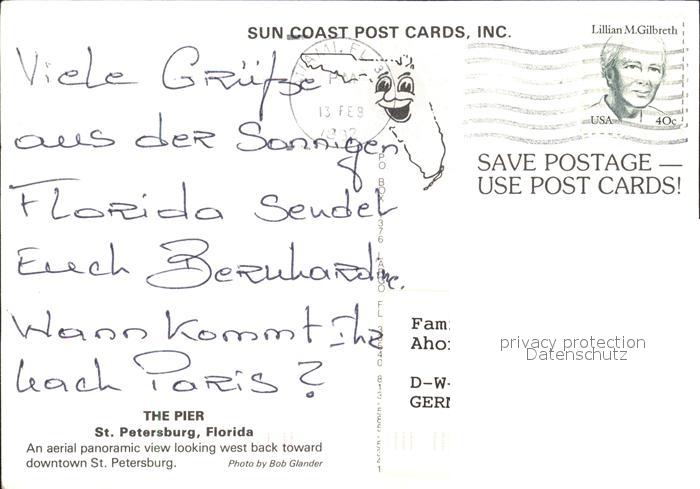 SUN COAST POST CARDS, INC.
Lillian M.Gilbreth
USA 40c
MIAMI, FL
PM
13 FEB
SAVE POSTAGE —
USE POST CARDS!
Viele Grüße
aus der Sonnigen
Florida Sendet
Euch Bernhardine.
Wann kommt Ihr
nach Paris?
THE PIER
St. Petersburg, Florida
An aerial panoramic view looking west back toward
downtown St. Petersburg. Photo by Bob Glander
PO BOX 376 LARGO FL
Fam
Aho
D-W-
GERM
privacy protection
Datenschutz